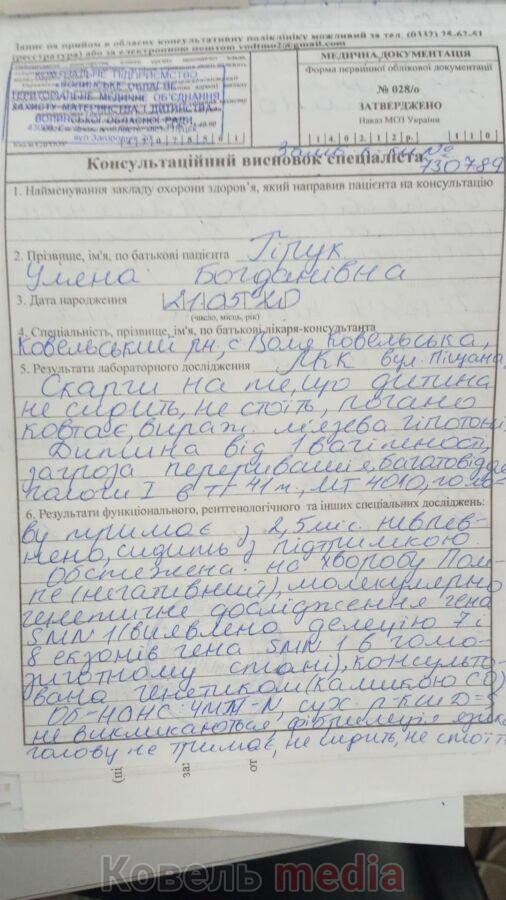 Запис на прийом в обласну консультативну поліклініку можливий за тел. (0332)
(реєстратура) або за електронною поштою
КОМУНАЛЬНЕ ПІДПРИЄМСТВО
ВОЛИНСЬКЕ ОБЛАСНЕ
ТЕРИТОРІАЛЬНЕ МЕДИЧНЕ ОБ'ЄДНАННЯ
ЗАХИСТУ МАТЕРИНСТВА І ДИТИНСТВА
ВОЛИНСЬКОЇ ОБЛАСНОЇ РАДИ
МЕДИЧНА ДОКУМЕНТАЦІЯ
Форма первинної облікової документації
№ 028/о
ЗАТВЕРДЖЕНО
Наказ МОЗ України
14.02.12р. 110
Консультаційний висновок спеціаліста
730789
1. Найменування закладу охорони здоров'я, який направив пацієнта на консультацію
2. Прізвище, ім'я, по батькові пацієнта Гіпук
Уляна Богданівна
3. Дата народження 21 05 20
(число, місяць, рік)
4. Спеціальність, прізвище, ім'я, по батькові лікаря-консультанта
Ковельський рн, с Воля Ковельська,
5. Результати лабораторного дослідження ЛКК вул. Піщана,
Скарги на те, що дитина
не сидить, не стоїть, погано
ковтає, вираж. м'язева гіпотоні
Дитина від I вагітності,
загроза переривання, багатовід
пологи I в т/ 41т., МТ 4010, голо-
6. Результати функціонального, рентгенологічного та інших спеціальних досліджень:
ву тримає з 2,5 міс. невпев-
нено, сидить з підтримкою.
Обстежена: на хворобу Пом-
пе (негативний), молекулярно
генетичне дослідження гена
SMN 1 (виявлено делецію 7 і
8 екзонів гена SMN 1 в гомо-
зиготному стані), консульто-
вана генетиком
Об-но НС: ЧМН-N сух. р-кси D=S
не викликаються, фібриляція язика
голову не тримає, не сидить, не стоїть
Ковель media